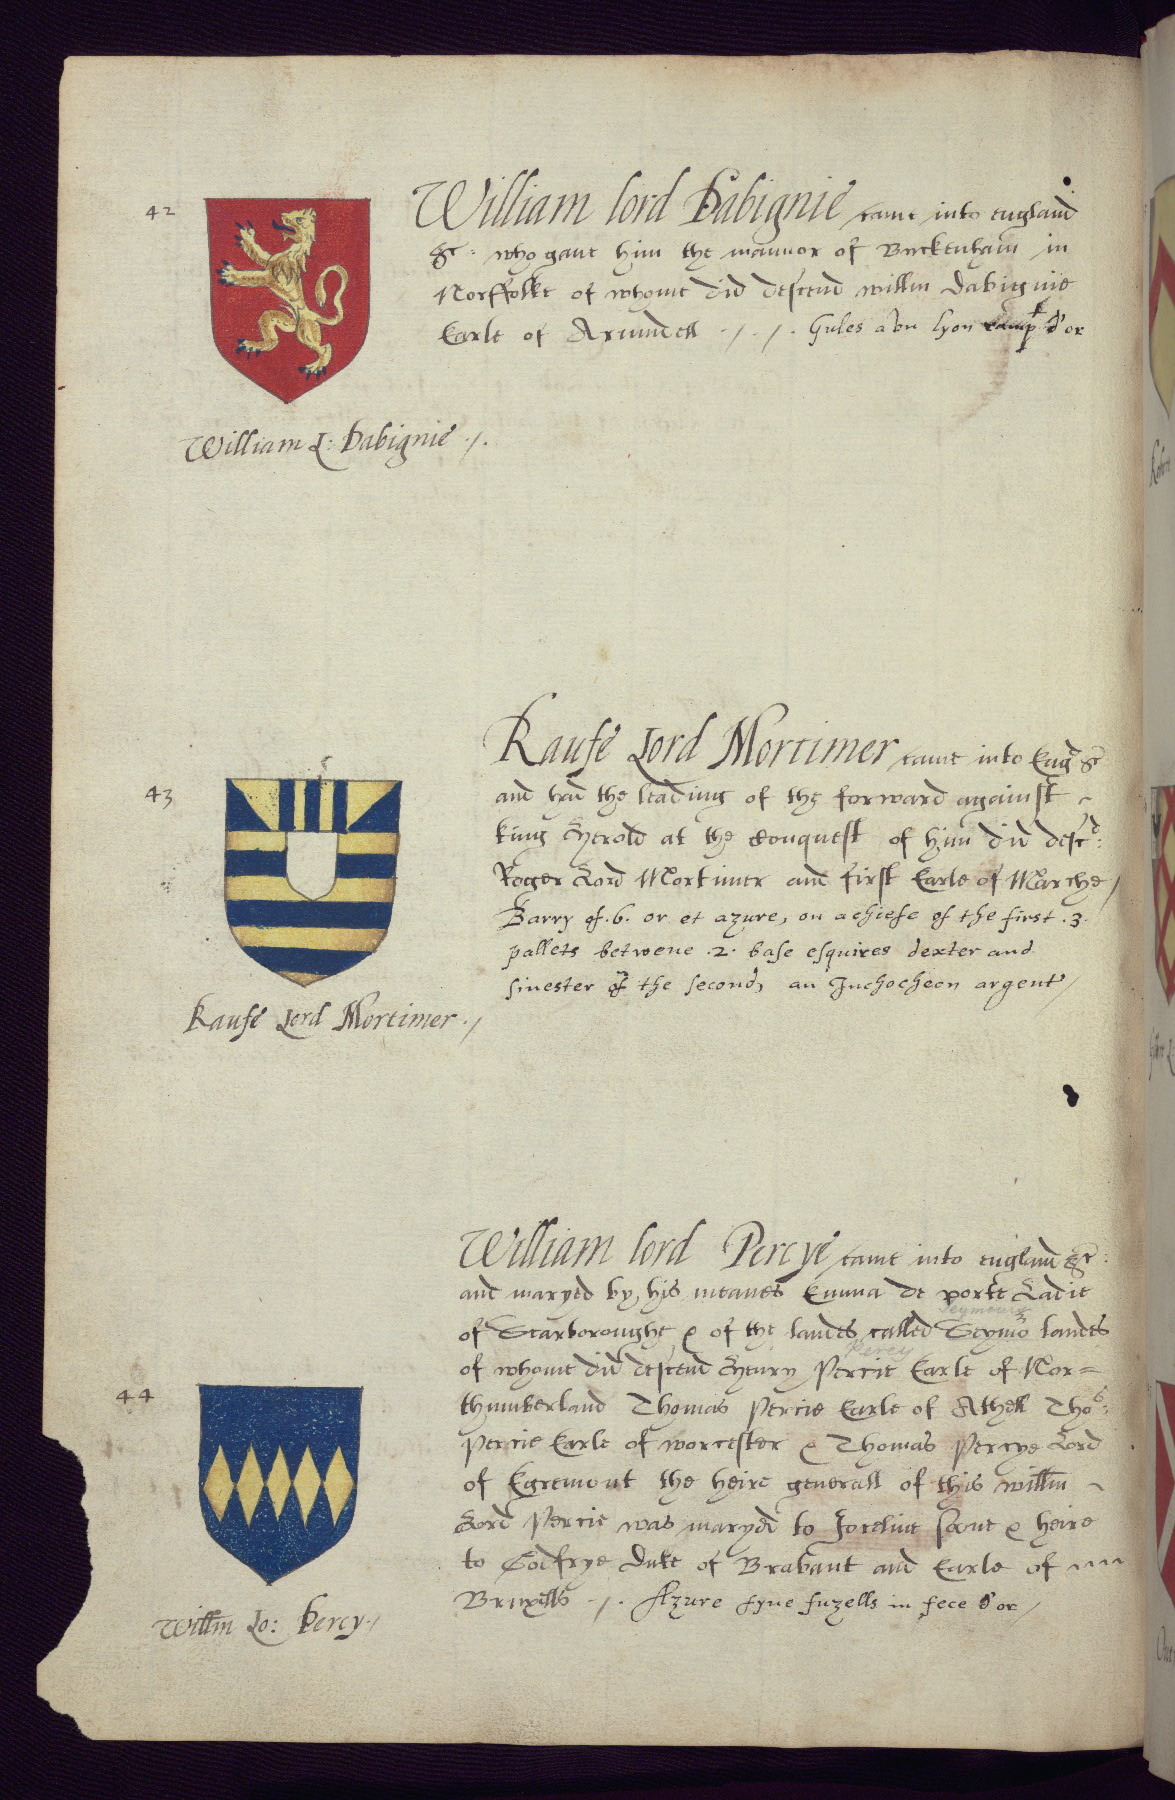 42
William lord Dabignie came into england
&c : who gave him the mannor of Buckenham in
Norffolke of whome did descend willm Dabignie
Earle of Arundell ·/·/· Gules a un lyon ramp d'or
William L: Dabignie ·/·
43
Raufe Lord Mortimer came into Eng &c
and had the leading of the forward against
king Herold at the Conquest of him did desc:
Roger Lord Mortimer and first Earle of Marche /
Barry of .6. or et azure, on a chiefe of the first .3.
pallets betwene .2. base esquires dexter and
sinester of the second, an Inchocheon argent /
Raufe Lord Mortimer ·/
William lord Percye came into england &c :
and maryed by his meanes Emma de porte Ladie
of Scarboroughe & of the landes called Seymo landes
Seymours
of whome did descend Henry Percie Earle of Nor=
Percy
44
thumberland Thomas Percie Earle of Athell Tho:
Percie Earle of worcester & Thomas Percye Lord
of Egremont the heire generall of this willm
Lord Percie was maryed to Joceline sone & heire
to Godfrye Duke of Brabant and Earle of
Bruxells ·/· Azure fyve fuzells in fece d'or /
Willm Lo: Percy ·/